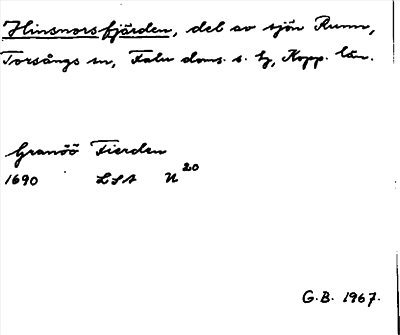 Hinsnorsfjärden, del av sjön Runn,
Torsångs sn, Falu doms. s. lg, Kopp. län.
Granöö Fierden
1690 LSA U 20
G.B. 1967.